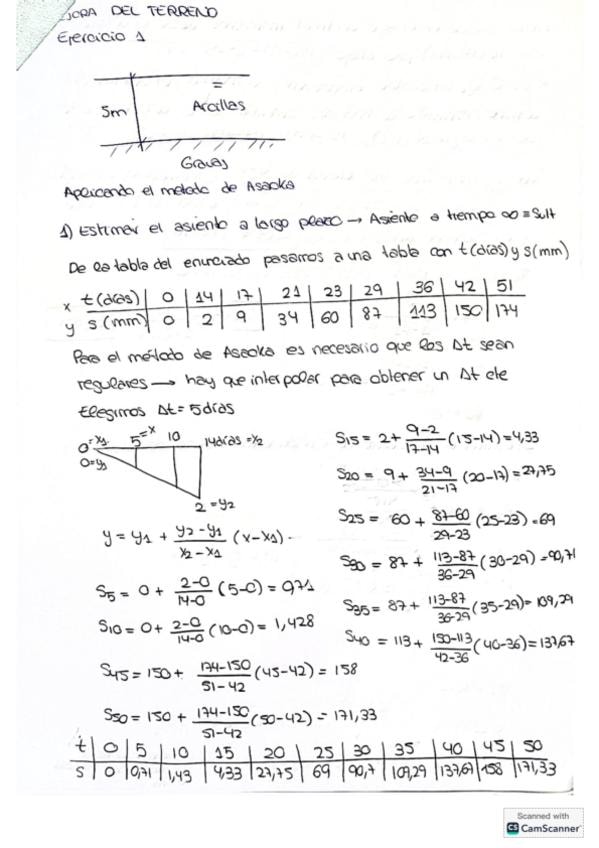 EJORA DEL TERRENO
Ejercicio 1
5m
=
Arcillas
Gravas
Aplicando el metodo de Asaoka
1) Estimar el asiento a largo plazo → Asiento a tiempo ∞ ≡ Sult
De la tabla del enunciado pasamos a una tabla con t(días) y s(mm)
x t(días) | 0 | 14 | 17 | 21 | 23 | 29 | 36 | 42 | 51
y s(mm) | 0 | 2 | 9 | 34 | 60 | 87 | 113 | 150 | 174
Para el método de Asaoka es necesario que los Δt sean
regulares → hay que interpolar para obtener un Δt cte
Elegimos Δt = 5 días
0=x1 5=x 10 14días = x2
0=y1
2 = y2
y = y1 + (y2-y1)/(x2-x1) (x-x1)
S5 = 0 + (2-0)/(14-0) (5-0) = 0,71
S10 = 0 + (2-0)/(14-0) (10-0) = 1,428
S15 = 2 + (9-2)/(17-14) (15-14) = 4,33
S20 = 9 + (34-9)/(21-17) (20-17) = 27,75
S25 = 60 + (87-60)/(29-23) (25-23) = 69
S30 = 87 + (113-87)/(36-29) (30-29) = 90,71
S35 = 87 + (113-87)/(36-29) (35-29) = 109,29
S40 = 113 + (150-113)/(42-36) (40-36) = 137,67
S45 = 150 + (174-150)/(51-42) (45-42) = 158
S50 = 150 + (174-150)/(51-42) (50-42) = 171,33
t | 0 | 5 | 10 | 15 | 20 | 25 | 30 | 35 | 40 | 45 | 50
S | 0 | 0,71 | 1,43 | 4,33 | 27,75 | 69 | 90,7 | 109,29 | 137,67 | 158 | 171,33
Scanned with
CS CamScanner